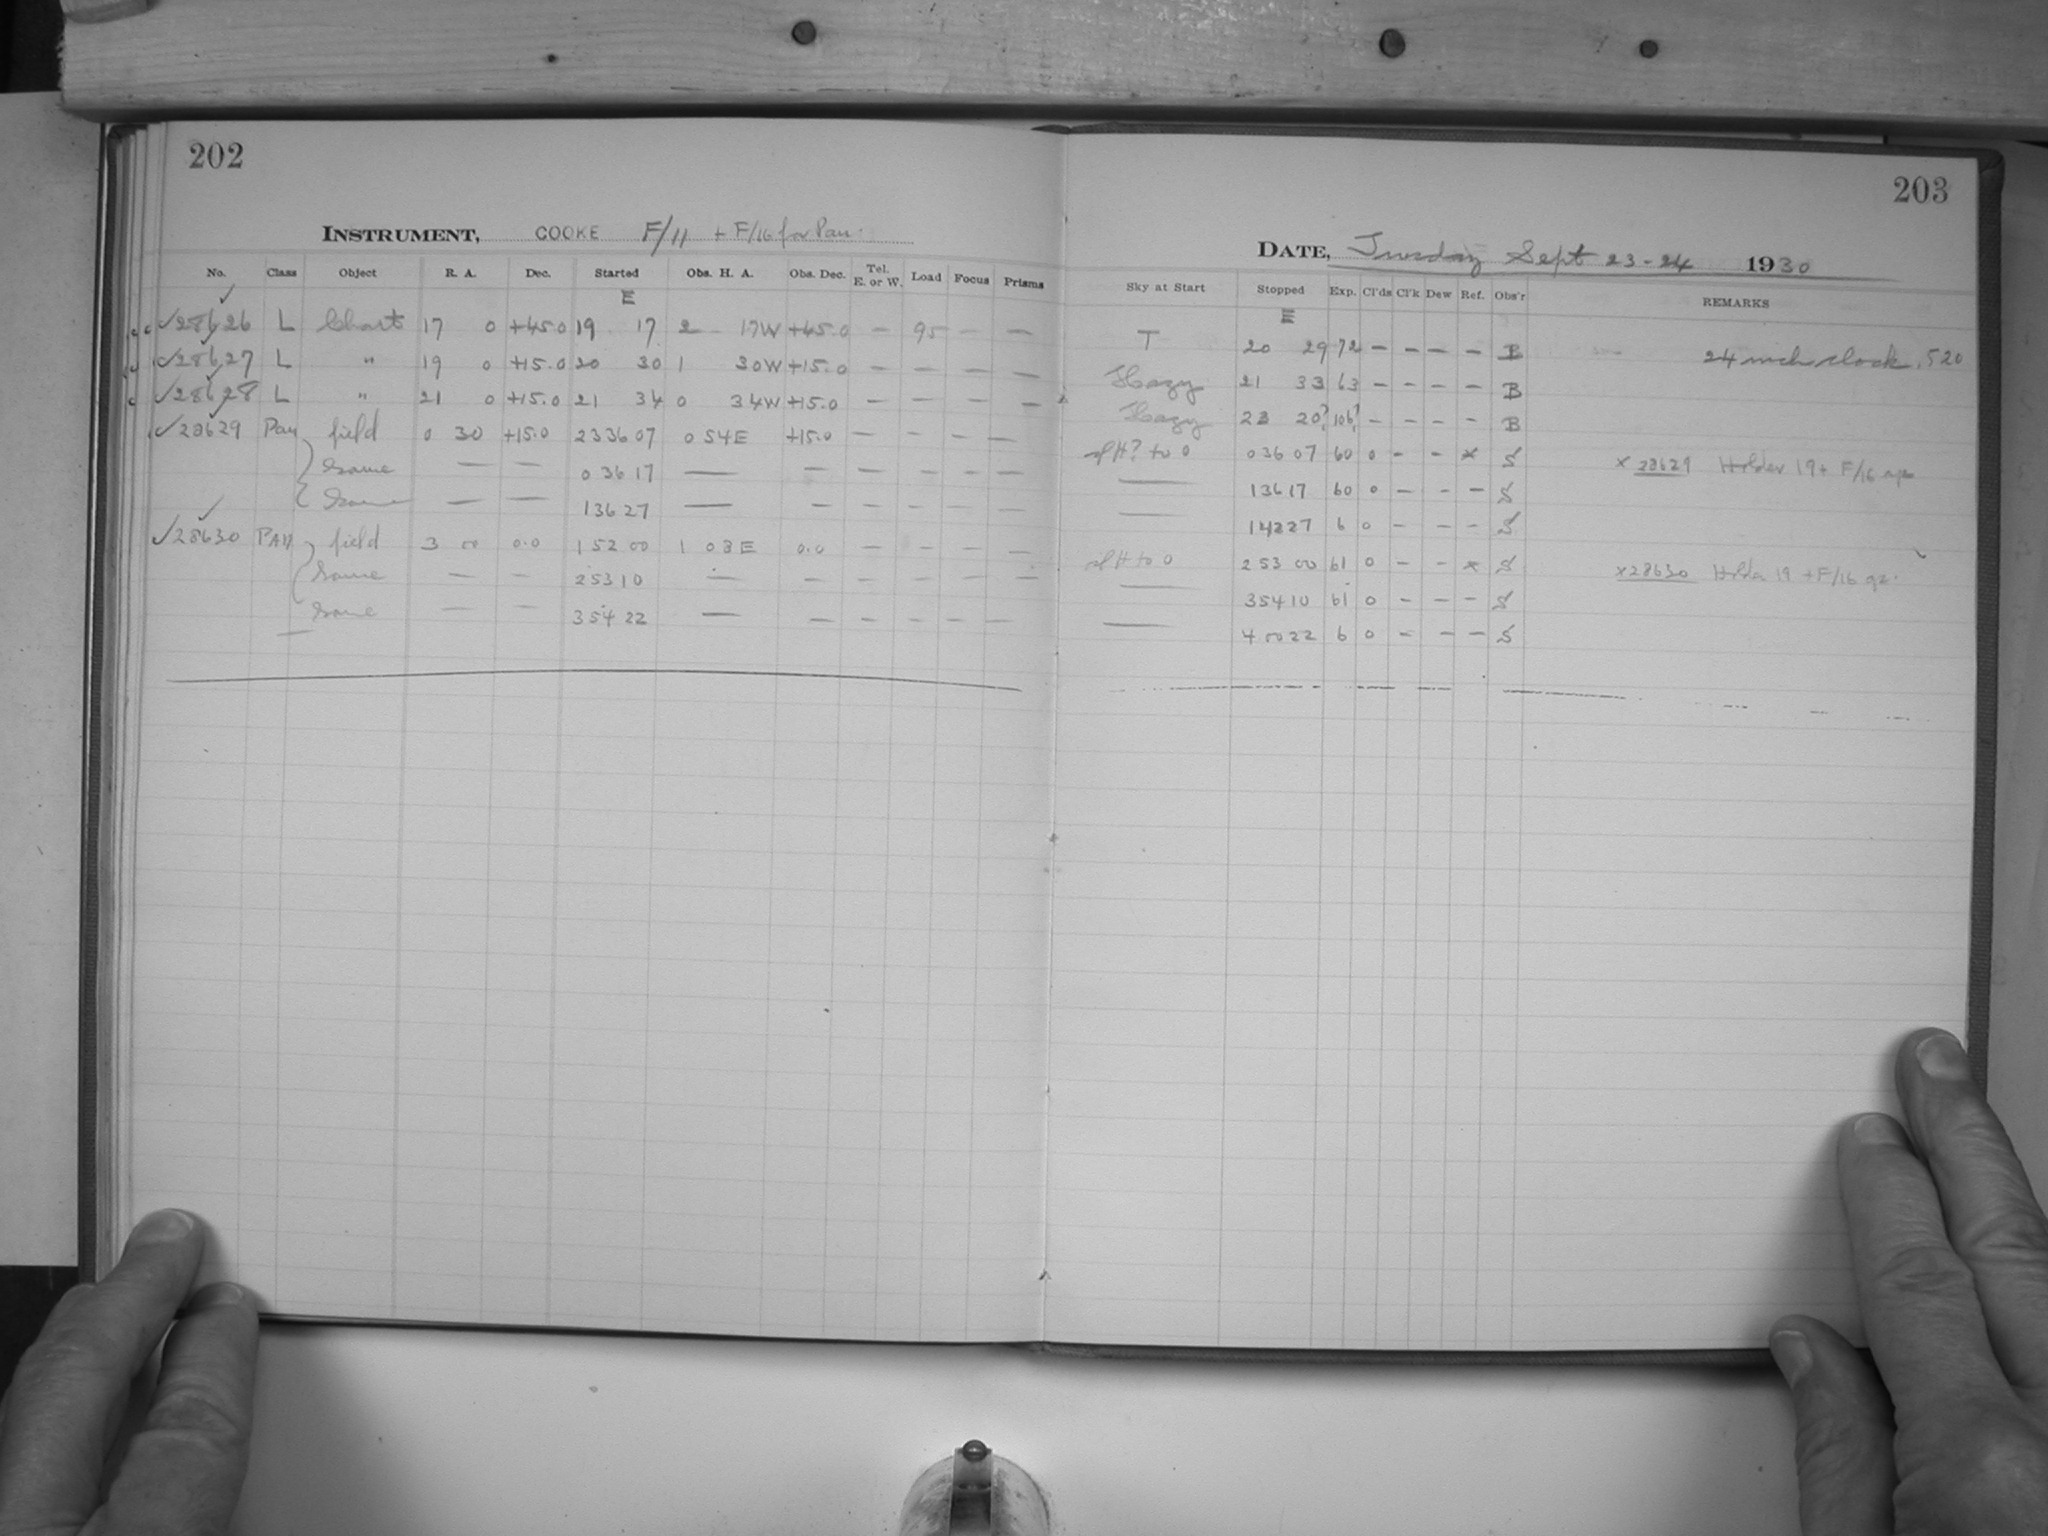 202
INSTRUMENT, COOKE F/11 + F/16 for Pan.
No. Class Object R. A. Dec. Started Obs. H. A. Obs. Dec. Tel. E. or W. Load Focus Prisms
E
✓28626 L Chart 17 0 +45.0 19 17 2 17W +45.0 — 95 — —
✓28627 L " 19 0 +15.0 20 30 1 30W +15.0 — — — —
✓28628 L " 21 0 +15.0 21 34 0 34W +15.0 — — — —
✓28629 Pan field 0 30 +15.0 23 36 07 0 54E +15.0 — — — —
Same — — 0 36 17 — — — — — —
Same — — 1 36 27 — — — — — —
✓28630 PAN field 3 00 0.0 1 52 00 1 08E 0.0 — — — —
Same — — 2 53 10 — — — — — —
Same — — 3 54 22 — — — — — —
203
DATE, Tuesday Sept 23-24 1930
Sky at Start Stopped Exp. Cl'ds Cl'k Dew Ref. Obs'r REMARKS
E
T 20 29 72 — — — — B 24 inch clock, 520
Hazy 21 33 63 — — — — B
Hazy 23 20? 106? — — — — B
H? to 0 0 36 07 60 0 — — x S x 28629 Holder 19 + F/16 ap
— 1 36 17 60 0 — — — S
— 1 42 27 6 0 — — — S
H to 0 2 53 00 61 0 — — x S x28630 Holder 19 + F/16 ap.
— 3 54 10 61 0 — — — S
— 4 00 22 6 0 — — — S